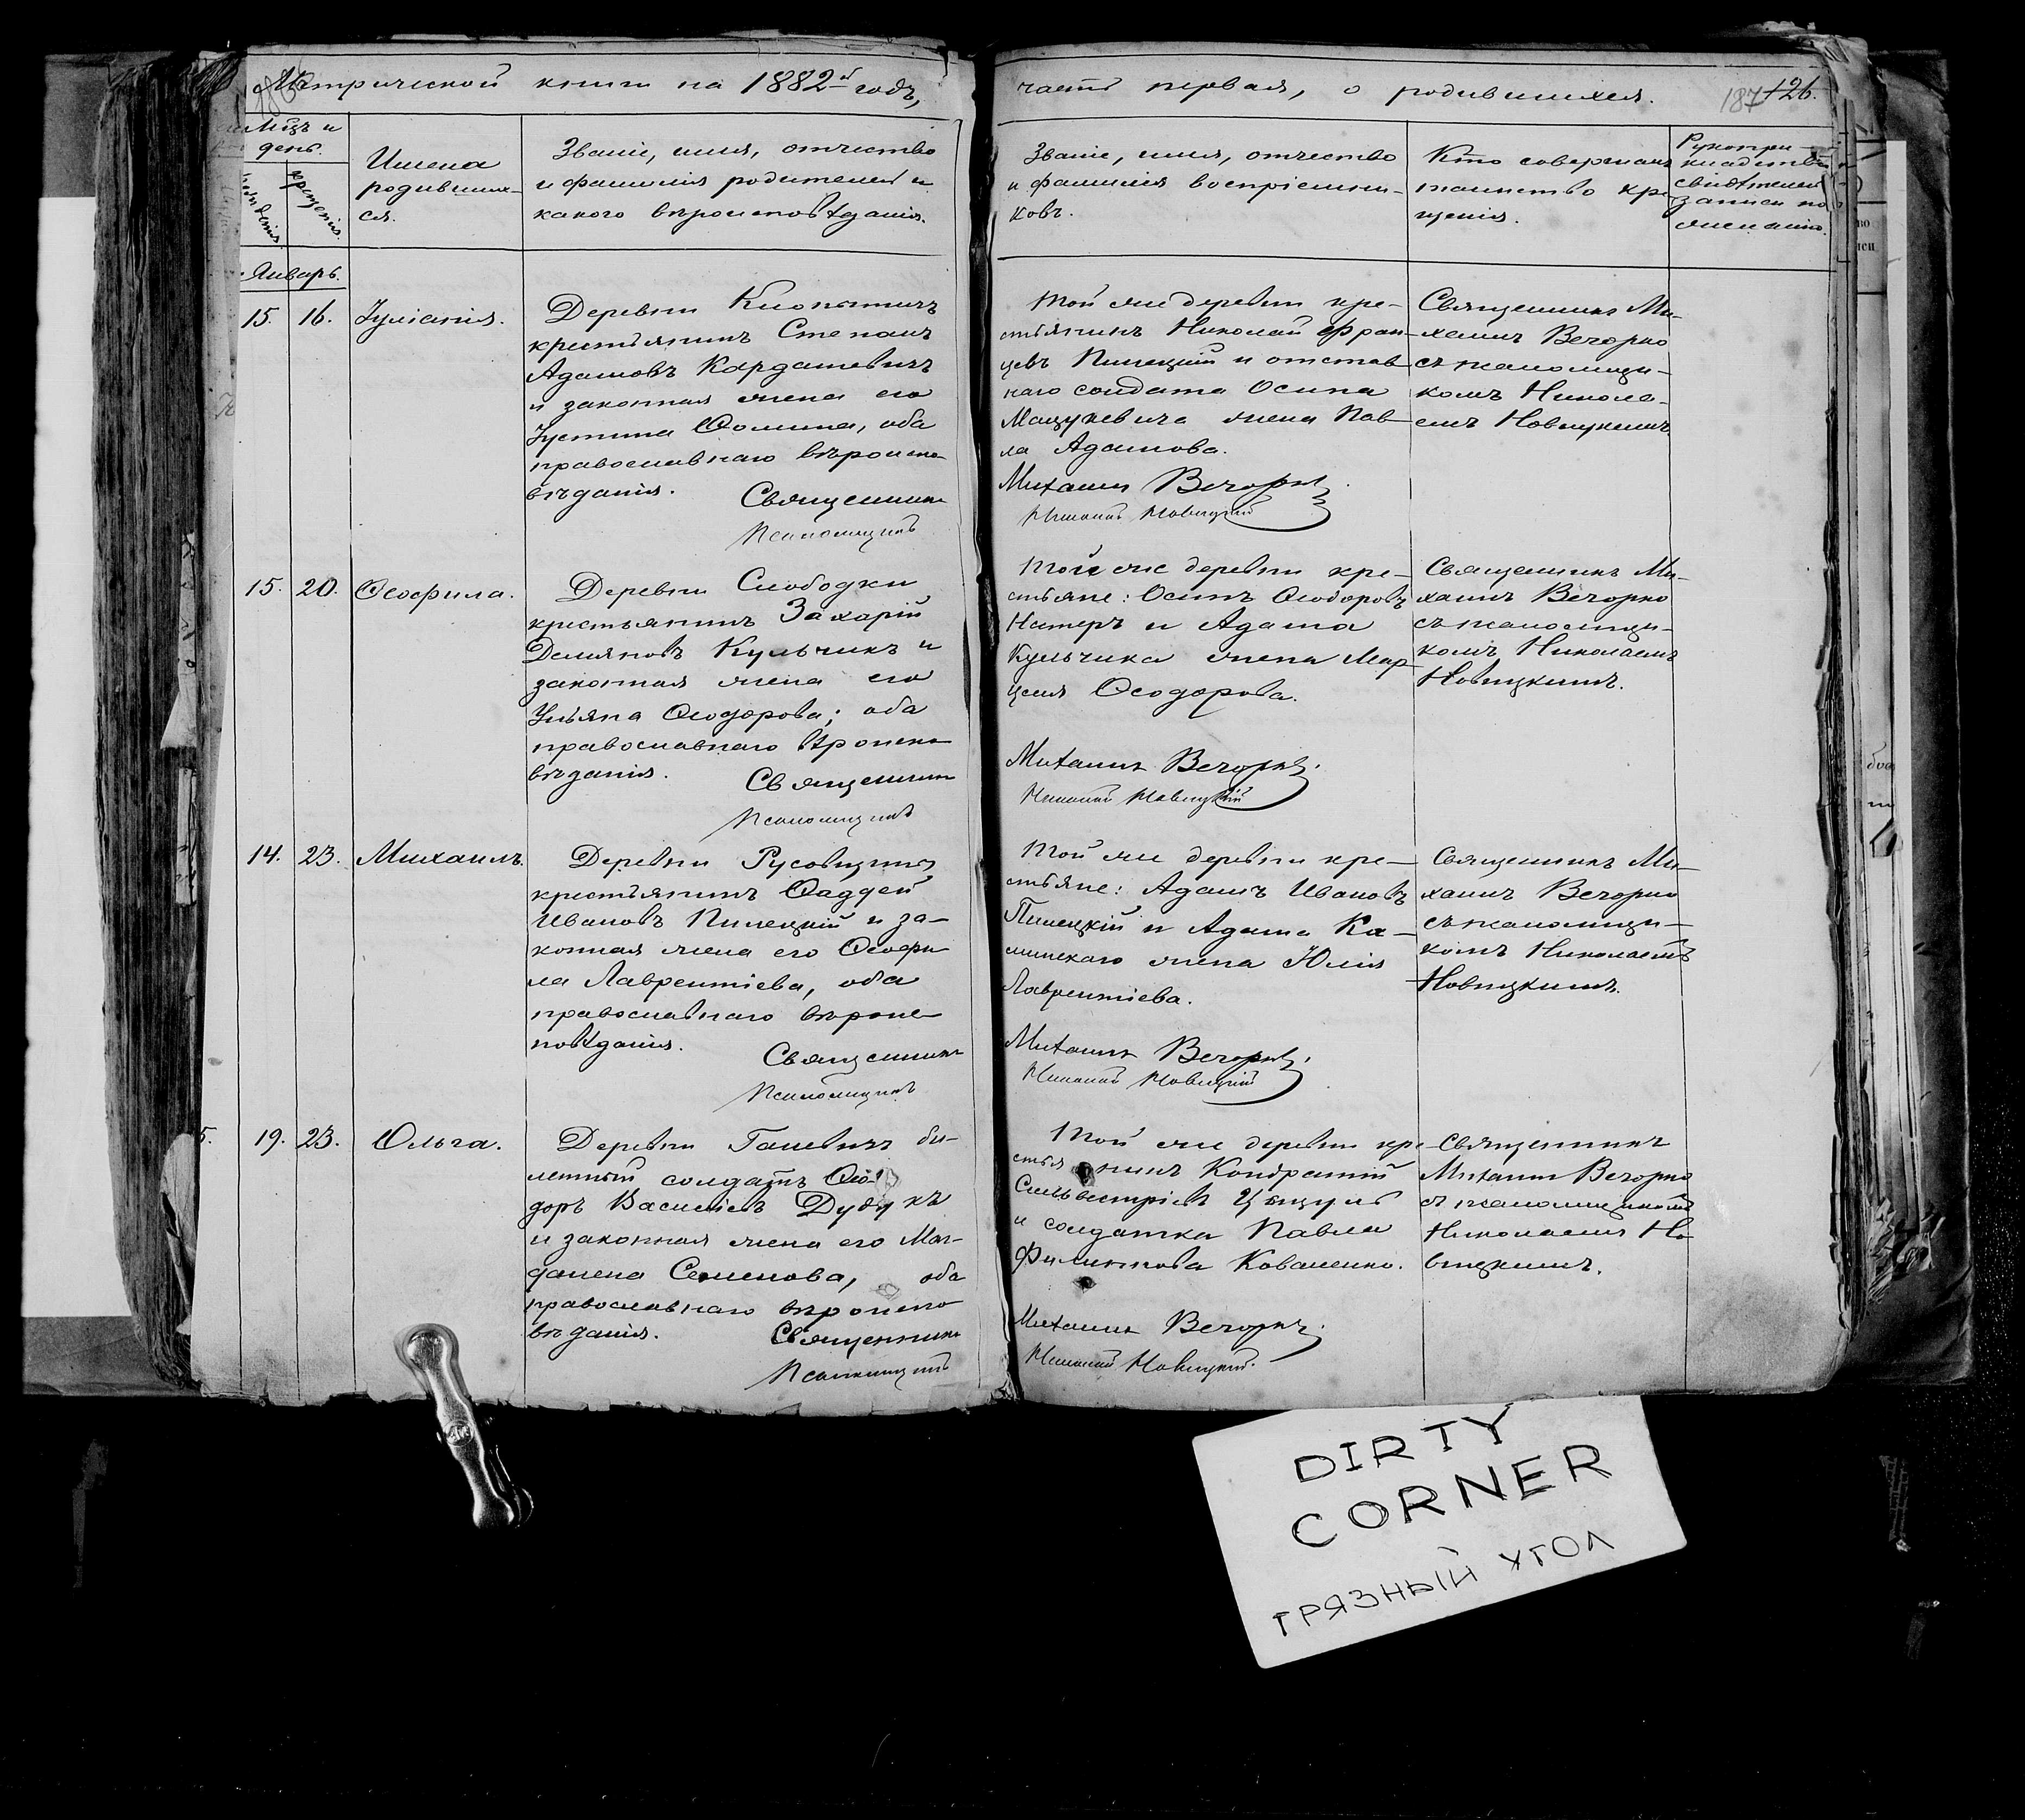 Метрической книги на 1882й годъ,
часть первая, о родившихся.
187 126.
Мѣцъ и
день.
рожденія.
крещенія.
Имена
родивших-
ся.
Званіе, имя, отчество
и фамилія родителей и
какого вѣроисповѣданія.
Званіе, имя, отчество
и фамилія воспріемни-
ковъ.
Кто совершалъ
таинство кре-
щенія.
Рукопри-
кладство
свидѣтелей
записи по
желанію.
Январь.
15. 16. Іуліанія.
Деревни
крестьянинъ Степанъ
Адамовъ Кардашевичъ
и законная жена его
Іустина Ѳомина, оба
православнаго вѣроиспо-
вѣданія. Священникъ
Псаломщикъ
Той же деревни кре-
стьянинъ Николай Фран-
цевъ Пилецкій и отстав
наго солдата Осипа
Мацукевича жена Пав-
ла Адамова.
Михаилъ Вечорко
Николай Новицкій
Священникъ Ми-
хаилъ Вечорко
съ псаломщи-
комъ Никола-
емъ Новицкимъ.
15. 20. Ѳеофила.
Деревни Слободки
крестьянинъ Захарій
Демяновъ Кульчикъ и
законная жена его
Ульяна Ѳеодорова; оба
православнаго вѣроиспо
вѣданія. Священникъ
Псаломщикъ
Той же деревни кре-
стьяне: Осипъ Ѳеодоровъ
и Адама
Кульчика жена Мар
целя Ѳеодорова.
Михаилъ Вечорко
Николай Новицкій
Священникъ Ми-
хаилъ Вечорко
съ псаломщи-
комъ Николаемъ
Новицкимъ.
14. 23. Михаилъ.
Деревни Русовщины
крестьянинъ Ѳаддей
Ивановъ Пилецкій и за-
конная жена его Ѳеофи
ла Лаврентіева, оба
православнаго вѣроис-
повѣданія. Священникъ
Псаломщикъ
Той же деревни кре-
стьяне: Адамъ Ивановъ
Пилецкій и Адама Ка-
минскаго жена Юлія
Лаврентіева.
Михаилъ Вечорко
Николай Новицкій
Священникъ Ми-
хаилъ Вечорко
съ псаломщи-
комъ Николаемъ
Новицкимъ.
5. 19. 23. Ольга.
Деревни Ганевичъ би-
летный солдатъ Ѳео-
доръ Васильевъ Дубикъ
и законная жена его Маг-
далена Семенова, оба
православнаго вѣроиспо
вѣданія. Священникъ
Псаломщикъ
Той же деревни кре
стьянинъ Кондратій
Сильвестріевъ
и солдатка Павла
Филиппова Коваленко.
Михаилъ Вечорко
Николай Новицкій.
Священникъ
Михаилъ Вечорко
съ псаломщикомъ
Николаемъ Но
вицкимъ.
DIRTY
CORNER
ГРЯЗНЫЙ УГОЛ